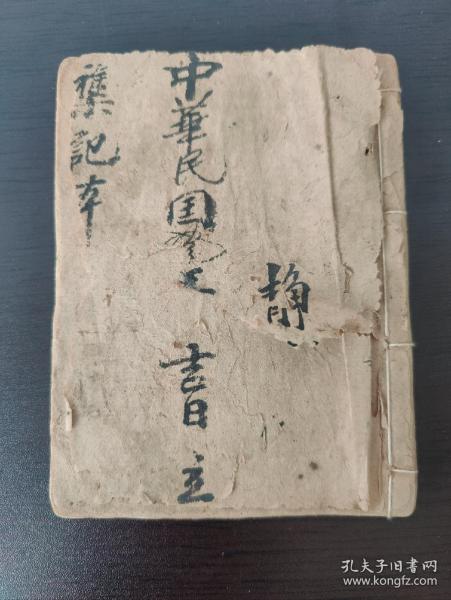 静
中華民国 吉日立
雜記本
孔夫子旧书网
www.kongfz.com